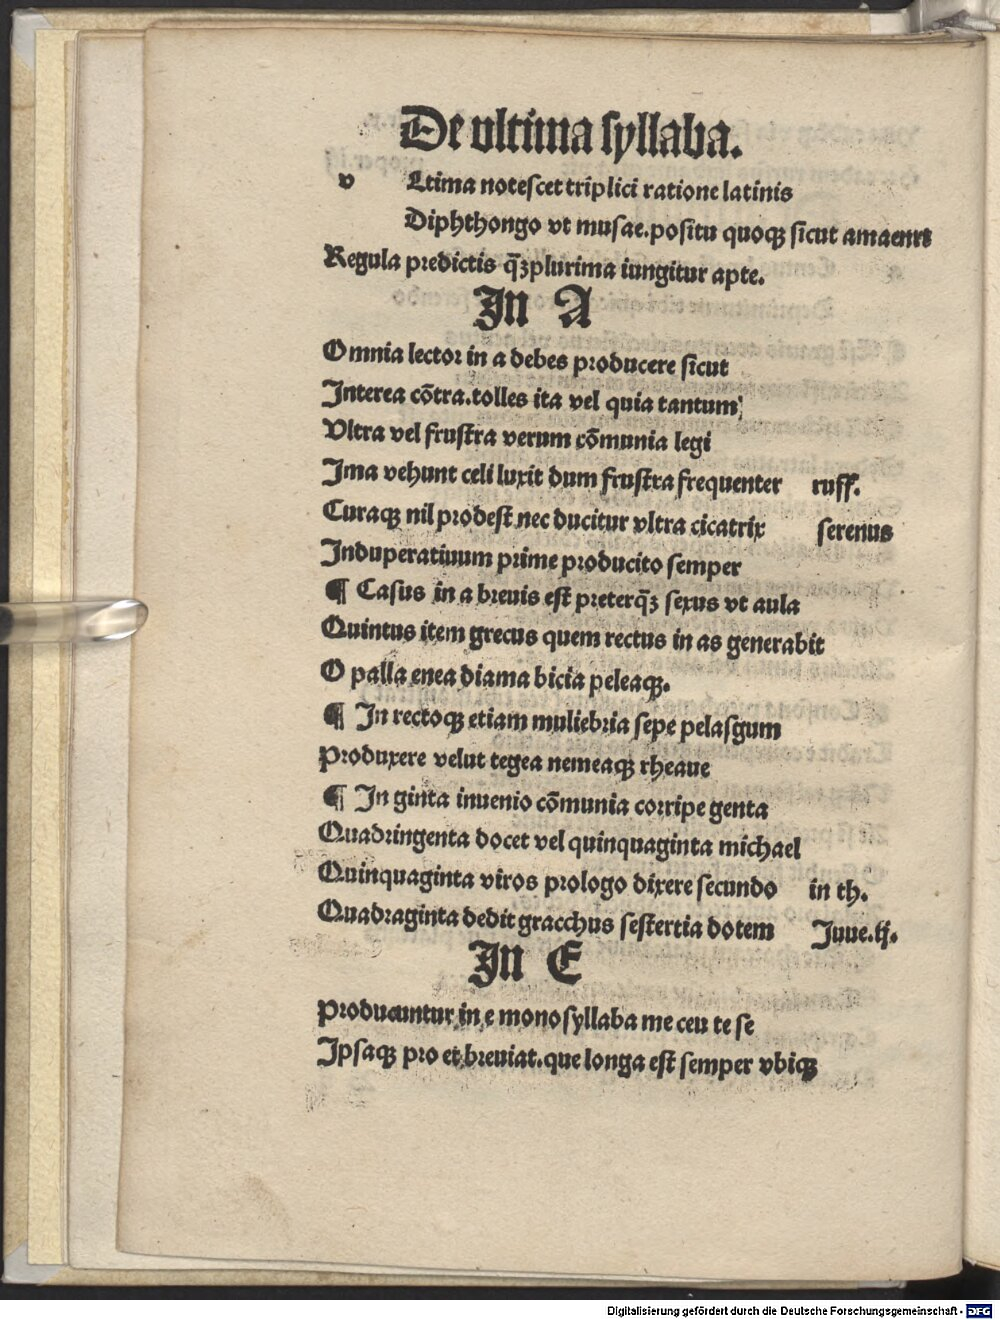 De ultima syllaba.
v Ltima notescet triplici ratione latinis
Diphthongo vt musae. positu quoqꝫ sicut amaent
Regula predictis q̄ꝫplurima iungitur apte.
In A
Omnia lector in a debes producere sicut
Interea cōtra. tolles ita vel quia tantum
Vltra vel frustra verum cōmunia legi
Ima vehunt celi luxit dum frustra frequenter ruff.
Curaqꝫ nil prodest nec ducitur vltra cicatrix serenus
Induperatiuum prime producito semper
¶ Casus in a breuis est preterq̄ꝫ sexus vt aula
Quintus item grecus quem rectus in as generabit
O palla enea diama bicia peleaqꝫ.
¶ In rectoqꝫ etiam muliebria sepe pelasgum
Produxere velut tegea nemeaqꝫ rheaue
¶ In ginta inuenio cōmunia corripe genta
Quadringenta docet vel quinquaginta michael
Quinquaginta viros prologo dixere secundo in th.
Quadraginta dedit gracchus sestertia dotem Juue. ij.
In E
Producuntur in e monosyllaba me ceu te se
Ipsaqꝫ pro et breuiat. que longa est semper vbiqꝫ
Digitalisierung gefördert durch die Deutsche Forschungsgemeinschaft - DFG